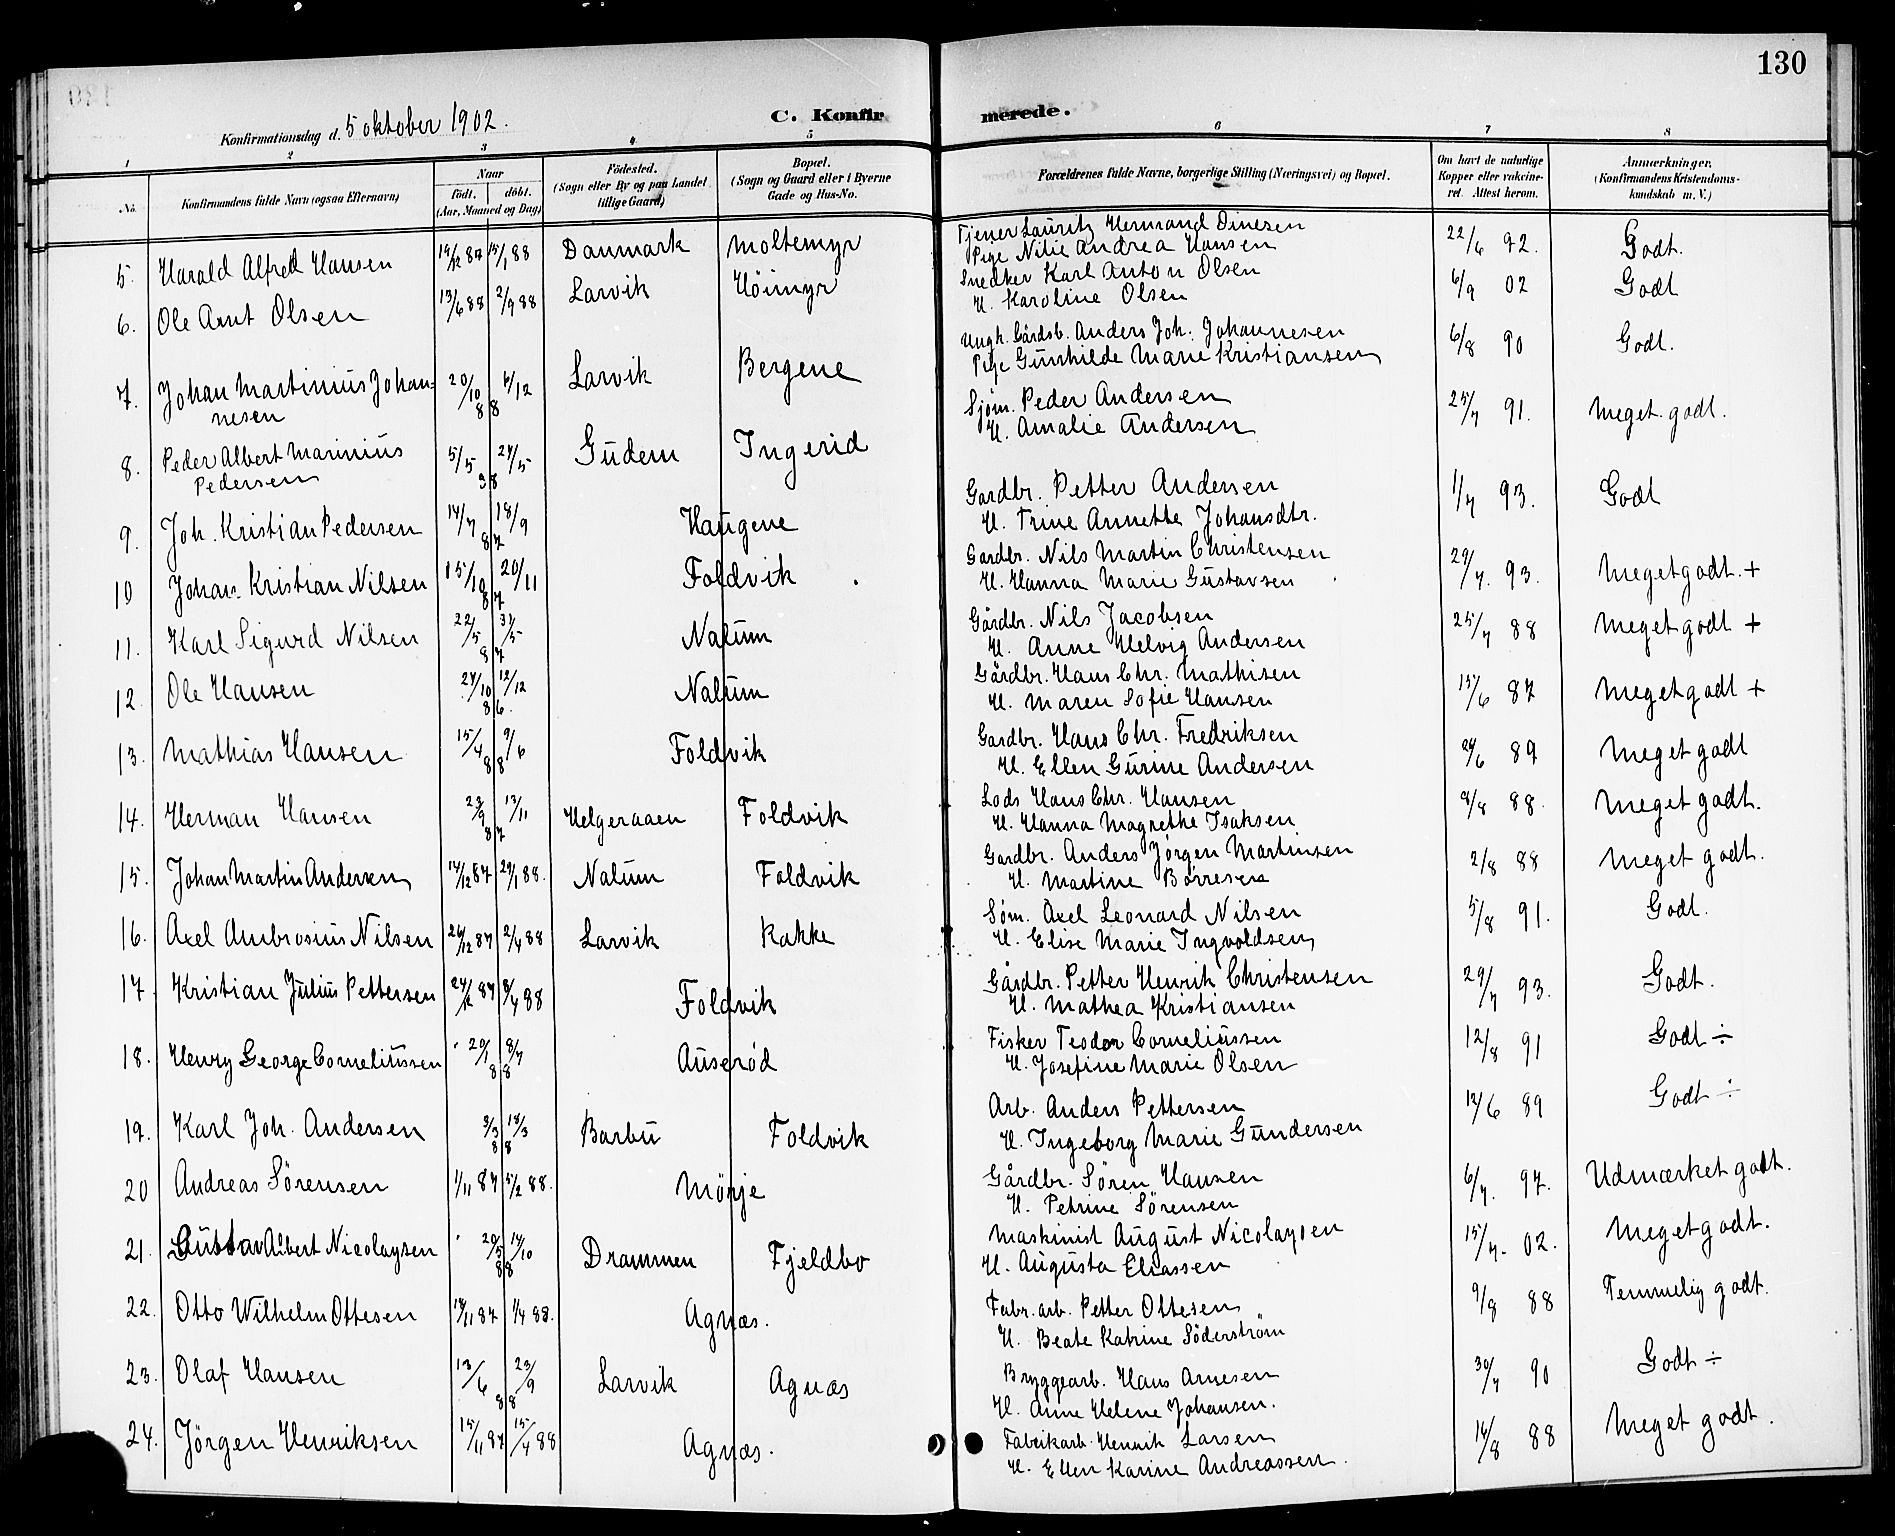 130
Konfirmationsdag d. 5 oktober 1902.
C. Konfirmerede.
1 2 3 4 5 6 7 8
No. Konfirmandens fulde Navn (ogsaa Efternavn) Naar födt. döbt. (Aar, Maaned og Dag) Födested. (Sogn eller By og paa Landet tillige Gaard) Bopæl. (Sogn og Gaard eller i Byerne Gade og Hus-No. Forældrenes fulde Navne, borgerlige Stilling (Næringsvei) og Bopæl. Om havt de naturlige Kopper eller vakcineret. Attest herom. Anmærkninger. (Konfirmandens Kristendomskundskab m. V.)
5. Harald Alfred Hansen 14/12 87 15/1 88 Danmark Moltemyr Tjener Lauritz Hermand Dinesen
Pige Nilie Andrea Hansen 22/6 92. Godt.
6. Ole Arnt Olsen 13/6 88 2/9 88 Larvik Höimyr Snedker Karl Anton Olsen
H. Karoline Olsen 6/9 02 Godt
7. Johan Martinius Johannesen 20/10 6/12 88 Larvik Bergene Ungk. Gårdsb. Anders Joh. Johannesen
Pige Gunhilde Marie Kristiansen 6/8 90 Godt.
8. Peder Albert Marinius
Pedersen 5/5 27/5 Gudem Ingerid Sjøm. Peder Andersen
H. Amalie Andersen 25/7 91. Meget godt.
9. Joh. Kristian Pedersen 14/7 18/9 87 Haugene Gardbr. Petter Andersen
H. Trine Annette Johansdtr. 1/7 93. Godt
10 Johan Kristian Nilsen 15/10 20/11 87 Foldvik Gardbr. Nils Martin Christensen
H. Hanna Marie Gustavsen 29/7. 93. Meget godt. +
11. Karl Sigurd Nilsen 22/5 31/5 87 Nalum Gårdbr. Nils Jacobsen
H. Anne Helvig Andersen 25/7 88 Meget godt +
12. Ole Hansen 24/10 12/12 86. Nalum Gårdbr. Hans Chr. Mathisen
H. Maren Sofie Hansen 15/6 87 Meget godt +
13. Mathias Hansen 15/4 9/6 88 Foldvik Gardbr. Hans Chr. Fredriksen
H. Ellen Gurine Andersen 24/6 89 Meget godt
14. Herman Hansen 23/9 13/11 87 Helgeraaen Foldvik Lods Hans Chr. Hansen
H. Hanna Magrethe Isaksen 9/8 88. Meget godt.
15. Johan Martin Andersen 14/12 87 29/1 88. Nalum Foldvik Gardbr. Anders Jørgen Martinsen
H. Martine Børresen 2/8 88 Meget godt.
16. Axel Ambrosius Nilsen 26/12 87 2/4 88 Larvik Kakke Søm. Axel Leonard Nilsen
H. Elise Marie Ingvoldsen 5/8 91. Godt.
17. Kristian Julius Pettersen 24/12 87 8/4 88 Foldvik Gårdbr. Petter Henrik Christensen
H. Mathea Kristiansen 29/7 93. Godt.
18. Henry George Corneliussen 20/1 8/7 88 Auserød Fisker Teodor Corneliussen
H. Josefine Marie Olsen 12/8 91 Godt ÷
19. Karl Joh. Andersen 3/3 18/3 88 Barbu Foldvik Arb. Anders Pettersen
H. Ingeborg Marie Gundersen 12/6 89 Godt ÷
20 Andreas Sörensen 1/11 87 5/2 88. Mörje Gårdbr. Sören Hansen
H. Petrine Sörensen 6/7. 97. Udmærket godt.
21. Gustav Albert Nicolaysen 20/5 14/10 88 Drammen Fjeldbo Maskinist August Nicolaysen
H. Augusta Eliassen 15/7. 02. Meget godt.
22. Otto Wilhelm Ottesen 14/11 87 1/4 88. Agnæs. Fabr. arb. Petter Ottesen
H. Beate Katrine Söderström 9/8 88 Temmelig godt.
23. Olaf Hansen 13/6 23/9 88 Larvik Agnæs Bryggearb. Hans Arnesen
H. Anne Helene Johansen. 30/7 90 Godt ÷
24. Jörgen Henriksen 15/11 87 15/4 88 Agnæs. Fabrikarb. Henrik Larsen
H. Ellen Karine Andreassen. 14/8 88 Meget godt.